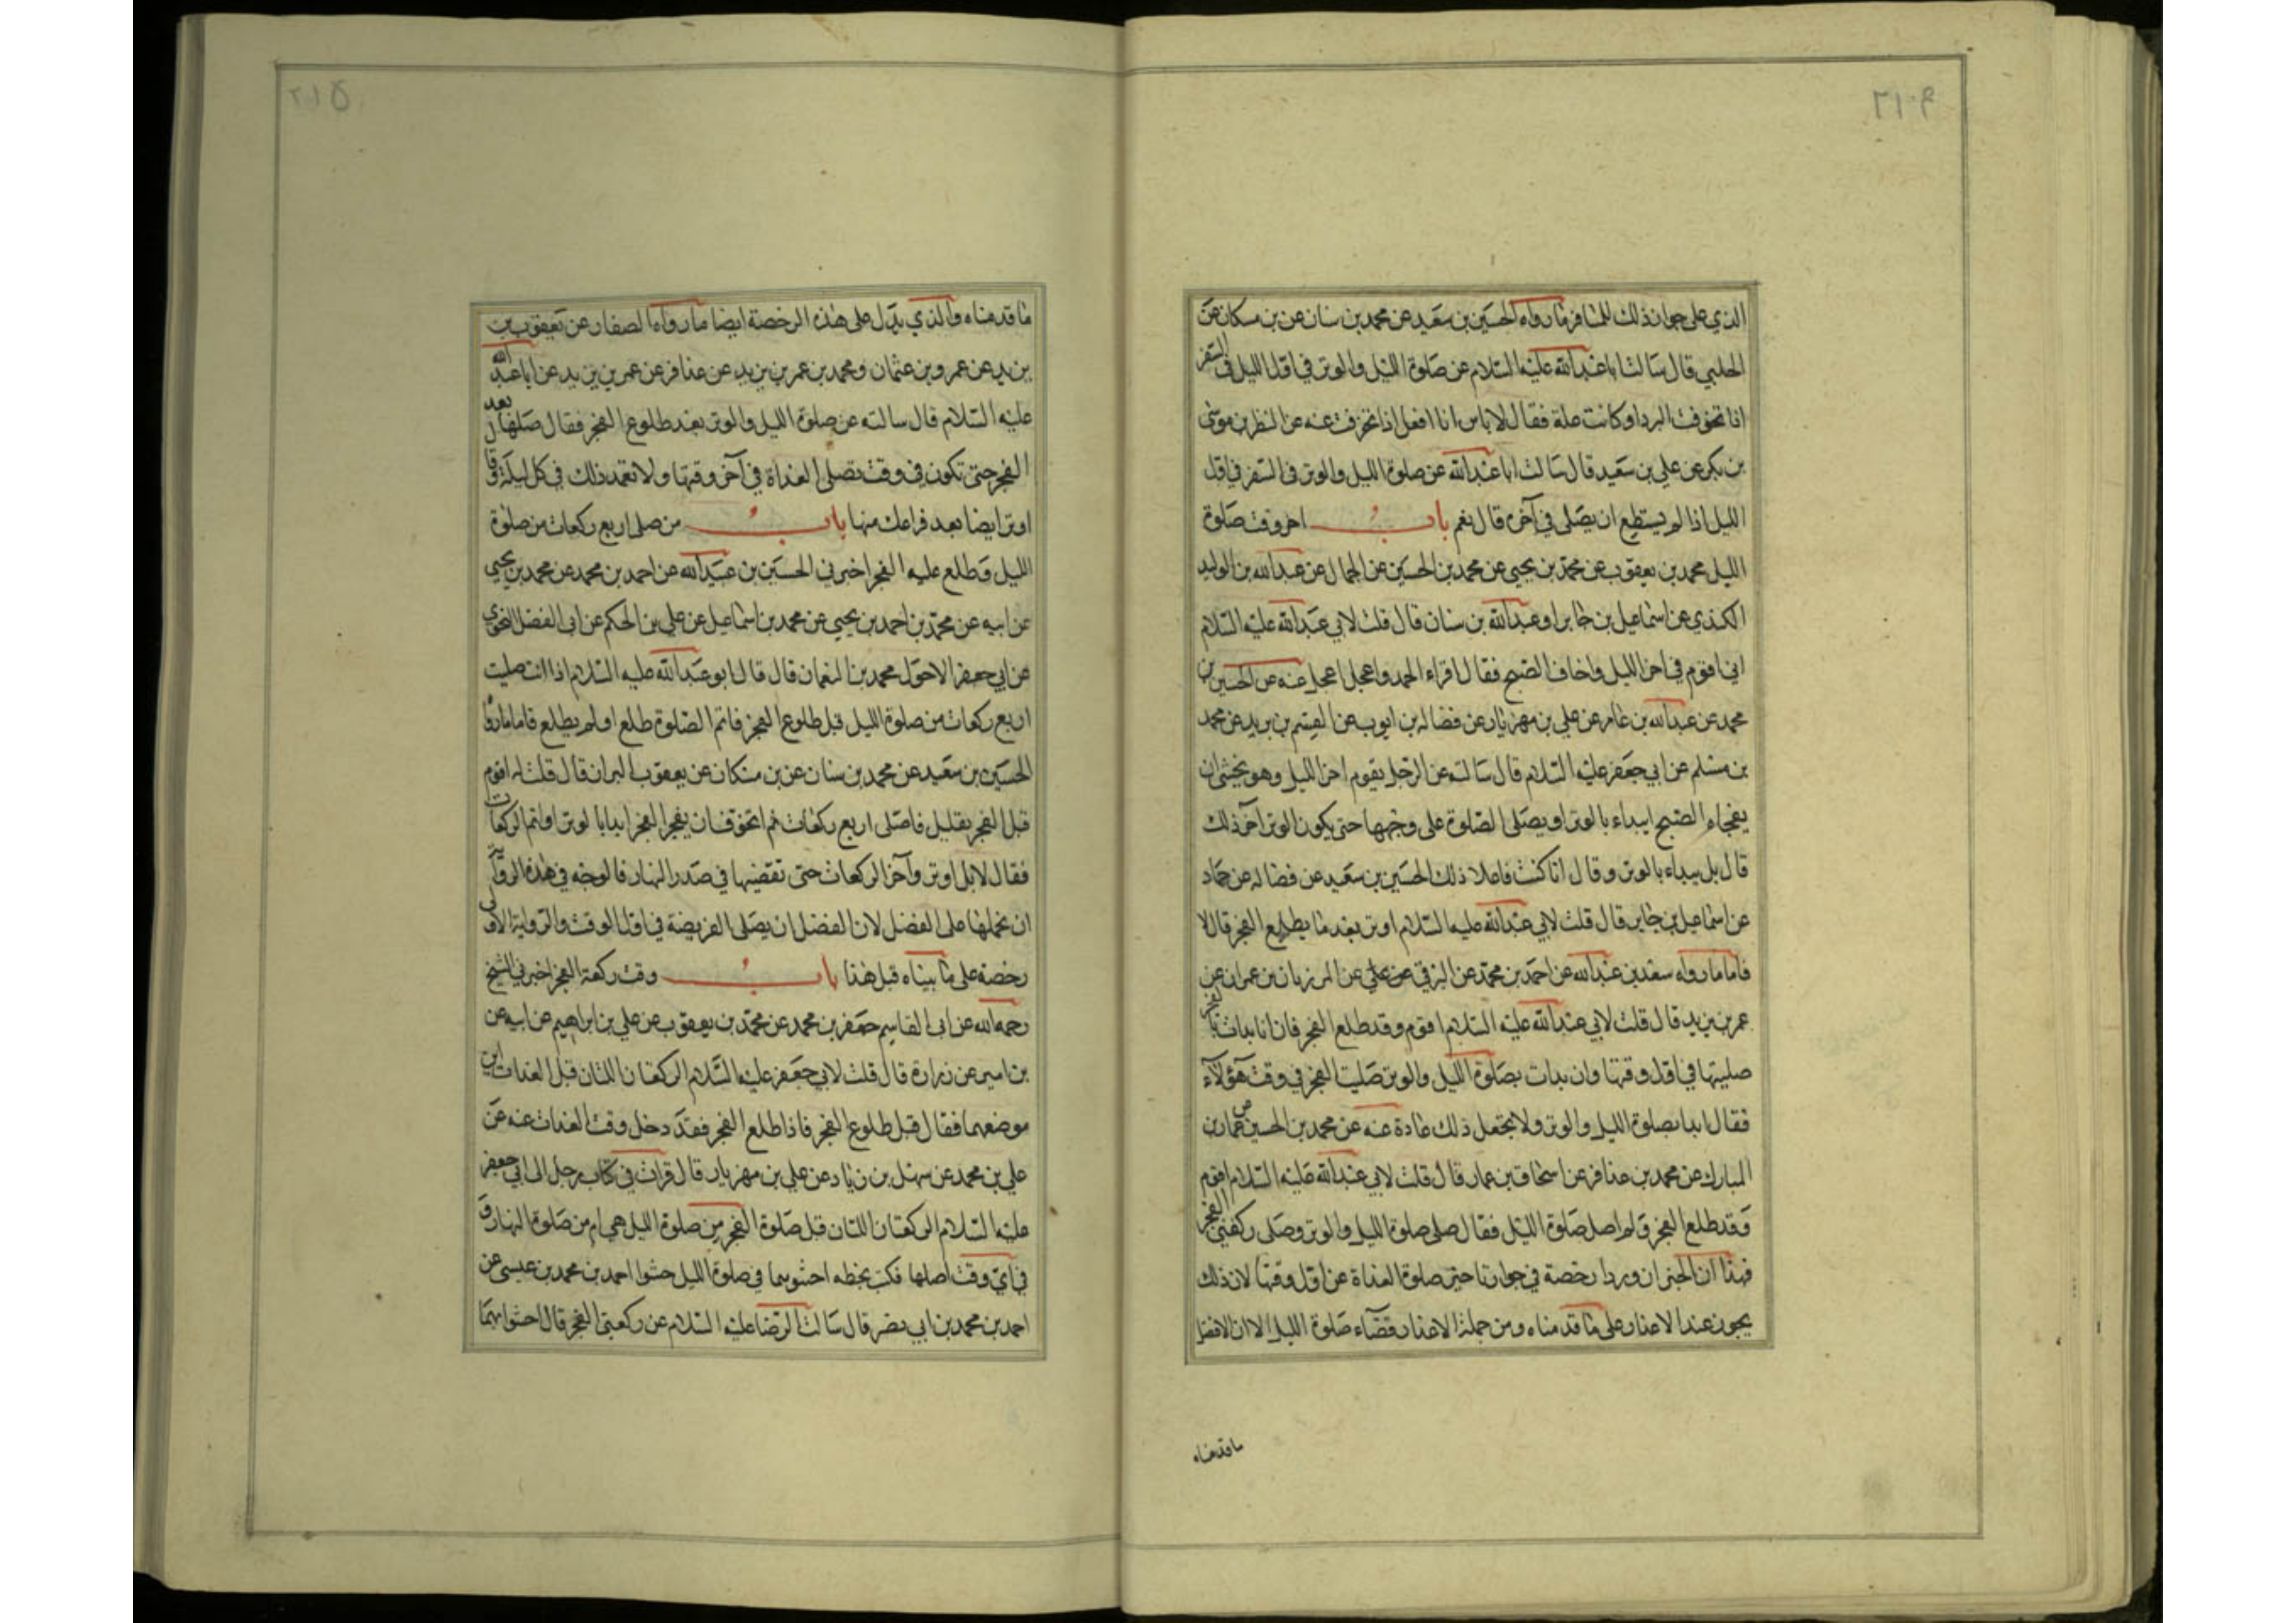 الذي على جواز ذلك للمسافر ما رواه الحسين بن سعيد عن محمد بن سنان عن بن مسكان عن
الحلبي قال سالت ابا عبدالله عليه السلام عن صلوة الليل والوتر في اول الليل في السفر
اذا تخوفت البرد او كانت علة فقال لا باس انا افعل اذا تخوفت عنه عن النظر بن موسى
بن بكر عن علي بن سعيد قال سالت ابا عبدالله عن صلوة الليل والوتر في السفر في اول
الليل اذا لم يستطع ان يصلي في آخره قال نعم باب اخر وقت صلوة
الليل محمد بن يعقوب عن محمد بن يحيى عن محمد بن الحسين عن الجمال عن عبدالله بن الوليد
الكندي عن اسماعيل بن جابر او عبدالله بن سنان قال قلت لابي عبدالله عليه السلام
اني اقوم في اخر الليل واخاف الصبح فقال اقراء الحمد واعجل اعجل عنه عن الحسين بن
محمد عن عبدالله بن عامر عن علي بن مهزيار عن فضاله بن ايوب عن القسم بن بريد عن محمد
بن مسلم عن ابي جعفر عليه السلام قال سالته عن الرجل يقوم اخر الليل وهو يخشى ان
يفجاء الصبح ايبداء بالوتر او يصلى الصلوة على وجهها حتى يكون الوتر آخر ذلك
قال بل يبداء بالوتر وقال انا كنت فاعلا ذلك الحسين بن سعيد عن فضاله عن حماد
عن اسماعيل بن جابر قال قلت لابي عبدالله عليه السلام اوتر بعد ما يطلع الفجر قال لا
فاما ما رواه سعد بن عبدالله عن احمد بن محمد عن البرقي عن علي عن المرزبان بن عمران عن
عمر بن يزيد قال قلت لابي عبدالله عليه السلام اقوم وقد طلع الفجر فان انا بدات بالفجر
صليتها في اول وقتها وان بدات بصلوة الليل والوتر صليت الفجر في وقت هؤلآء
فقال ابدا بصلوة الليل والوتر ولا تجعل ذلك عادة عنه عن محمد بن الحسين عن عمار بن
المبارك عن محمد بن عذافر عن اسحاق بن عمار قال قلت لابي عبدالله عليه السلام اقوم
وقد طلع الفجر ولم اصل صلوة الليل فقال صلى صلوة الليل والوتر وصلى ركعتي الفجر
فهذا ان الخبران وردا رخصة في جواز تاخير صلوة الغداة عن اول وقتها لان ذلك
يجوز عند الاعذار على ما قدمناه ومن جملة الاعذار قضآء صلوة الليل الا ان الافضل
ما قدمناه
٢١٥
ما قدمناه والذي يدل على هذه الرخصة ايضا ما رواه الصفار عن يعقوب بن
يزيد عن عمرو بن عثمان ومحمد بن عمر بن يزيد عن عذافر عن عمر بن يزيد عن ابا عبد الله
عليه السلام قال سالته عن صلوة الليل والوتر بعد طلوع الفجر فقال صلها بعد
الفجر حتى تكون في وقت تصلى الغداة في آخر وقتها ولا تعمد ذلك في كل ليلة وقال
اوتر ايضا بعد فراغك منها باب من صلى اربع ركعات من صلوة
الليل وطلع عليه الفجر اخبرني الحسين بن عبيدالله عن احمد بن محمد عن محمد بن يحيى
عن ابيه عن محمد بن احمد بن يحيى عن محمد بن اسماعيل عن علي بن الحكم عن ابى الفضل النحوي
عن ابي جعفر الاحول محمد بن النعمان قال قال ابو عبدالله عليه السلام اذا انت صليت
اربع ركعات من صلوة الليل قبل طلوع الفجر فاتم الصلوة طلع او لم يطلع فاما ما رواه
الحسين بن سعيد عن محمد بن سنان عن بن مسكان عن يعقوب البزاز قال قلت له اقوم
قبل الفجر بقليل فاصلى اربع ركعات ثم اتخوف ان ينفجر الفجر ابدا بالوتر او اتم الركعات
فقال لا بل اوتر وآخر الركعات حتى تقضيها في صدر النهار فالوجه في هذه الرواية
ان نحملها على الفضل لان الفضل ان يصلى الفريضة في اول الوقت والرواية الاولى
رخصة على ما بيناه قبل هذا باب وقت ركعة الفجر اخبرني الشيخ
رحمه الله عن ابى القاسم جعفر بن محمد عن محمد بن يعقوب عن علي بن ابراهيم عن ابيه عن
بن امير عن زرارة قال قلت لابي جعفر عليه السلام الركعتان اللتان قبل الغدات اين
موضعهما فقال قبل طلوع الفجر فاذا طلع الفجر فقد دخل وقت الغدات عنه عن
علي بن محمد عن سهل بن زياد عن علي بن مهزيار قال قرات في كتاب رجل الى ابي جعفر
عليه السلام الركعتان اللتان قبل صلوة الفجر من صلوة الليل هي ام من صلوة النهار و
في اي وقت اصلها فكتب بخطه احشوهما في صلوة الليل حشوا احمد بن محمد بن عيسى عن
احمد بن محمد بن ابي نصر قال سالت الرضا عليه السلام عن ركعتي الفجر قال احشوا بهما